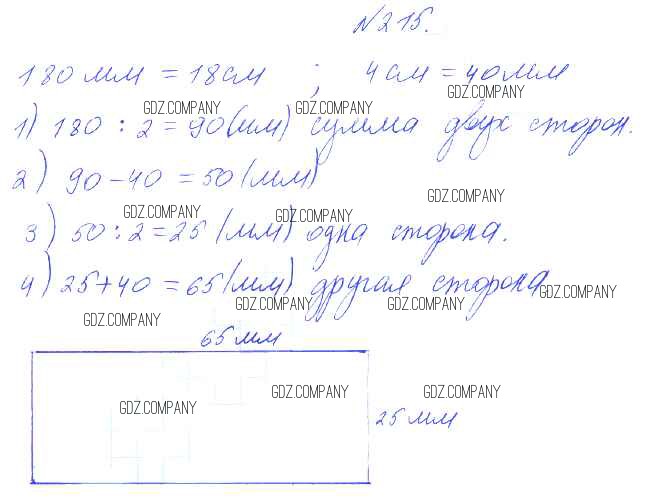 №215.
180 мм = 18 см ; 4 см = 40 мм
GDZ.COMPANY
GDZ.COMPANY GDZ.COMPANY
1) 180 : 2 = 90 (мм) сумма двух сторон.
2) 90 - 40 = 50 (мм)
GDZ.COMPANY
GDZ.COMPANY GDZ.COMPANY
3) 50 : 2 = 25 (мм) одна сторона.
4) 25 + 40 = 65 (мм) другая сторона
GDZ.COMPANY GDZ.COMPANY GDZ.COMPANY
GDZ.COMPANY
65 мм
GDZ.COMPANY GDZ.COMPANY
GDZ.COMPANY
25 мм